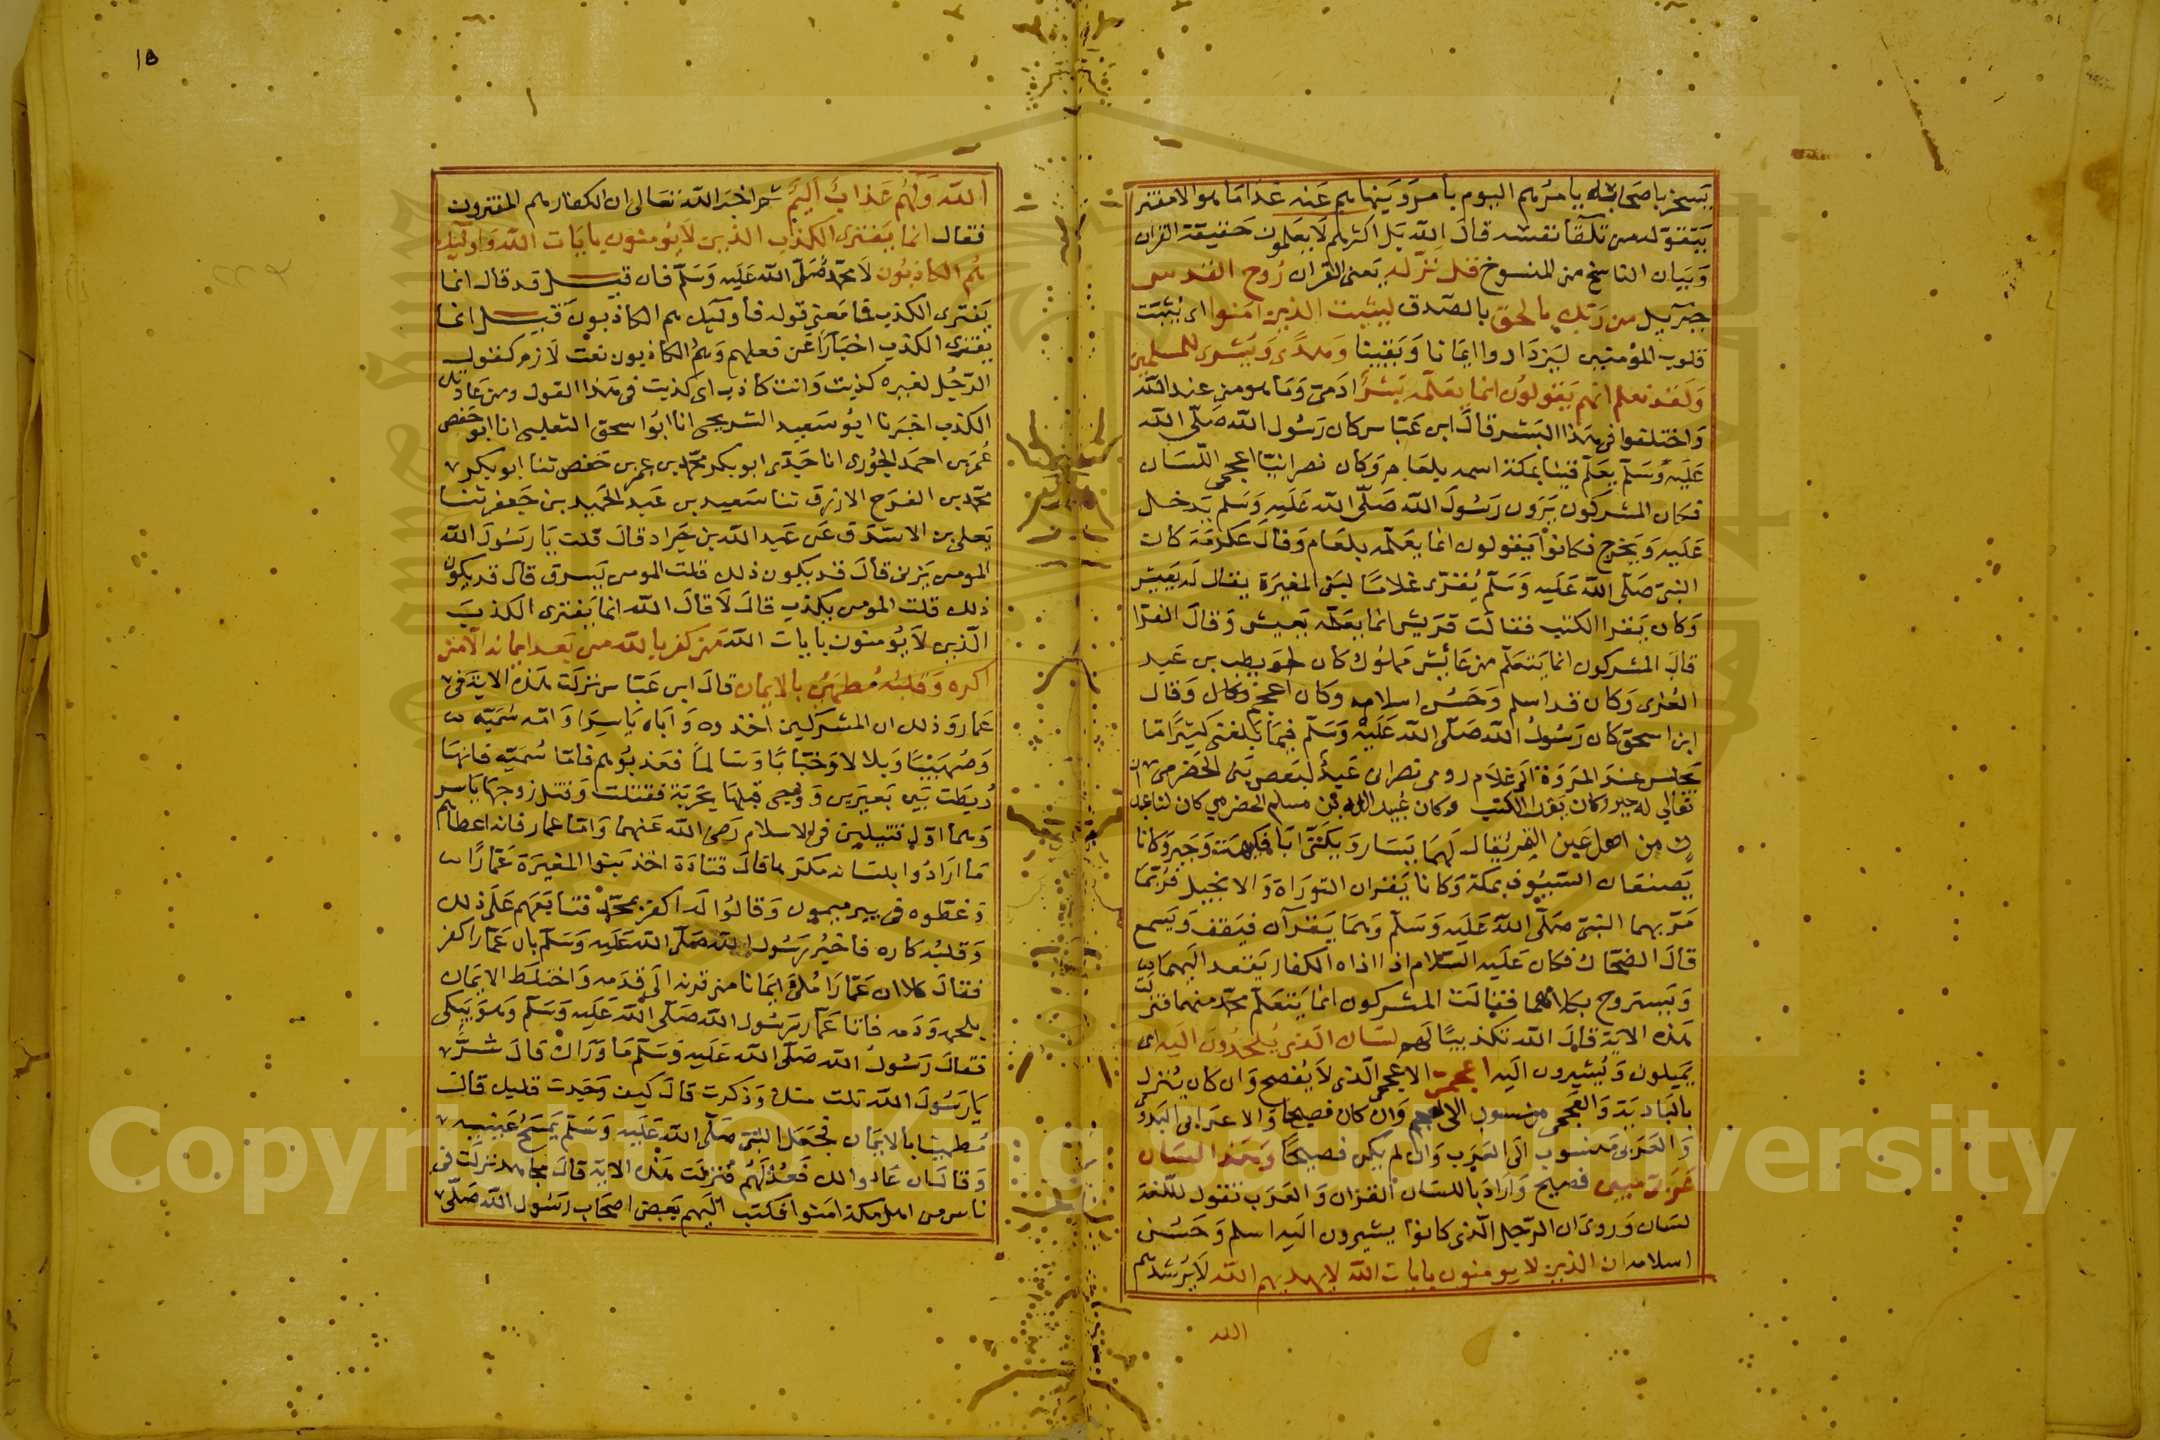 يسخر باصحابه يامرهم اليوم بامر وينهاهم عنه غدا ما هو الا مفتر
يتقوله من تلقا نفسه قال الله بل اكثرهم لا يعلمون حقيقة القران
وبيان الناسخ من المنسوخ قل نزله يعني القران روح القدس
جبريل من ربك بالحق بالصدق ليثبت الذين امنوا اي يثبت
قلوب المؤمنين ليزدادوا ايمانا ويقينا وهدى وبشرى للمسلمين
ولقد نعلم انهم يقولون انما يعلمه بشر ادمي وما هو من عند الله
واختلفوا في هذا البشر قال ابن عباس كان رسول الله صلى الله
عليه وسلم يعلم قينا بمكة اسمه بلعام وكان نصرانيا اعجمي اللسان
فكان المشركون يرون رسول الله صلى الله عليه وسلم يدخل
عليه ويخرج فكانوا يقولون انما يعلمه بلعام وقال عكرمة كان
النبي صلى الله عليه وسلم يقرى غلاما لبني المغيرة يقال له يعيش
وكان يقرا الكتب فقالت قريش انما يعلمه يعيش وقال الفرا
قال المشركون انما يتعلم من عايش مملوك كان لحويطب بن عبد
العزى وكان قد اسلم وحسن اسلامه وكان اعجمي وقال
ابن اسحق كان رسول الله صلى الله عليه وسلم فيما بلغني كثيرا ما
يجلس عند المروة الى غلام رومي نصراني عبد لبعض بني الحضرمي
يقال له جبر وكان يقرا الكتب وكان عبيد الله بن مسلم الحضرمي كان لنا عبد
ان من اهل عين التمر يقال لهما يسار ويكنى ابا فكيهة وجبر وكانا
يصنعان السيوف بمكة وكانا يقران التوراة والانجيل فربما
مر بهما النبي صلى الله عليه وسلم وهما يقرآن فيقف ويسمع
قال الضحاك فكان عليه السلام اذا اذاه الكفار يقعد اليهما
ويستروح بكلامهما فقالت المشركون انما يتعلم محمد منهما فنزلت
هذه الاية قال الله تكذيبا لهم لسان الذي يلحدون اليه اي
يميلون ويشيرون اليه اعجمي الاعجمي الذي لا يفصح وان كان ينزل
بالبادية والعجمي منسوب الى العجم وان كان فصيحا والاعرابي البدوي
والعربي منسوب الى العرب وان لم يكن فصيحا وهذا لسان
عربي مبين فصيح واراد باللسان القران والعرب تقول للغة
لسان وروي ان الرجل الذي كانوا يشيرون اليه اسلم وحسن
اسلامه ان الذين لا يومنون بايات الله لا يهديهم الله لا يرشدهم
الله
الله ولهم عذاب اليم ثم اخبر الله تعالى ان الكفار هم المفترون
فقال انما يفترى الكذب الذين لا يؤمنون بايات الله واولئك
هم الكاذبون لا محمد صلى الله عليه وسلم فان قيل قد قال انما
يفترى الكذب فما معنى قوله فاولئك هم الكاذبون قيل انما
يفترى الكذب اخبارا عن فعلهم وهم الكاذبون نعت لازم كقول
الرجل لغيره كذبت وانت كاذب اي كذبت في هذا القول ومن عادتك
الكذب اخبرنا ابو سعيد الشريحي انا ابو اسحق الثعلبي انا ابو حفص
عمر بن احمد الجوري انا جدي ابو بكر محمد بن عمر بن حفص ثنا ابو بكر
محمد بن الفرج الازرق ثنا سعيد بن عبد الحميد بن جعفر ثنا
يعلى بن الاشدق عن عبد الله بن جراد قال قلت يا رسول الله
المومن يزني قال قد يكون ذلك قلت المومن يسرق قال قد يكون
ذلك قلت المومن يكذب قال لا قال الله انما يفترى الكذب
الذين لا يؤمنون بايات الله من كفر بالله من بعد ايمانه الا من
اكره وقلبه مطمئن بالايمان قال ابن عباس نزلت هذه الاية في
عمار وذلك ان المشركين اخذوه واباه ياسرا وامه سمية
وصهيبا وبلالا وخبابا وسالما فعذبوهم فاما سمية فانها
ربطت بين بعيرين ووجي قبلها بحربة فقتلت وقتل زوجها ياسر
وهما اول قتيلين في الاسلام رضي الله عنهما واما عمار فانه اعطاهم
ما ارادوا بلسانه مكرها قال قتادة اخذ بنوا المغيرة عمارا
وغطوه في بير ميمون وقالوا له اكفر بمحمد فتابعهم على ذلك
وقلبه كاره فاخبر رسول الله صلى الله عليه وسلم بان عمارا كفر
فقال كلا ان عمارا ملئ ايمانا من قرنه الى قدمه واختلط الايمان
بلحمه ودمه فاتا عمار رسول الله صلى الله عليه وسلم وهو يبكي
فقال رسول الله صلى الله عليه وسلم ما وراك قال شر
يا رسول الله نلت منك وذكرت قال كيف وجدت قلبك قال
مطمينا بالايمان فجعل النبي صلى الله عليه وسلم يمسح عينيه
وقال ان عادوا لك فعد لهم فنزلت هذه الاية قال مجاهد نزلت في
ناس من اهل مكة امنوا فكتب اليهم بعض اصحاب رسول الله صلى
Copyright © King Saud University